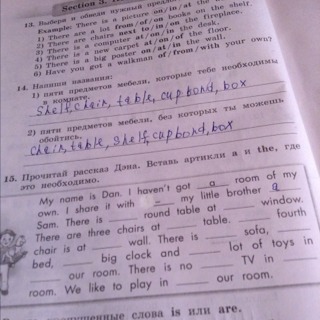 Section 3.
13. Выбери и обведи нужный
Example: There is a picture on/in/at the
1) There are a lot from/of/on books on the shelf.
2) There are chairs next to/in/on the fireplace.
3) There is a computer at/on/in the desk.
4) There is a new carpet at/on/of the floor.
5) There is a big poster on/at/in the wall.
6) Have you got a walkman of/from/with your own?
14. Напиши названия:
1) пяти предметов мебели, которые тебе необходимы
в комнате,
Shelf, chair, table, cupbond, box
2) пяти предметов мебели, без которых ты можешь
обойтись.
chair, table, shelf, cupbond, box
15. Прочитай рассказ Дэна. Вставь артикли a и the, где
это необходимо.
My name is Dan. I haven't got a room of my
own. I share it with – my little brother a
Sam. There is ___ round table at ___ window.
There are three chairs at ___ table. ___ fourth
chair is at ___ wall. There is ___ sofa, ___
bed, ___ big clock and ___ lot of toys in
___ our room. There is no ___ TV in ___
room. We like to play in ___ our room.
пропущенные слова is или are.